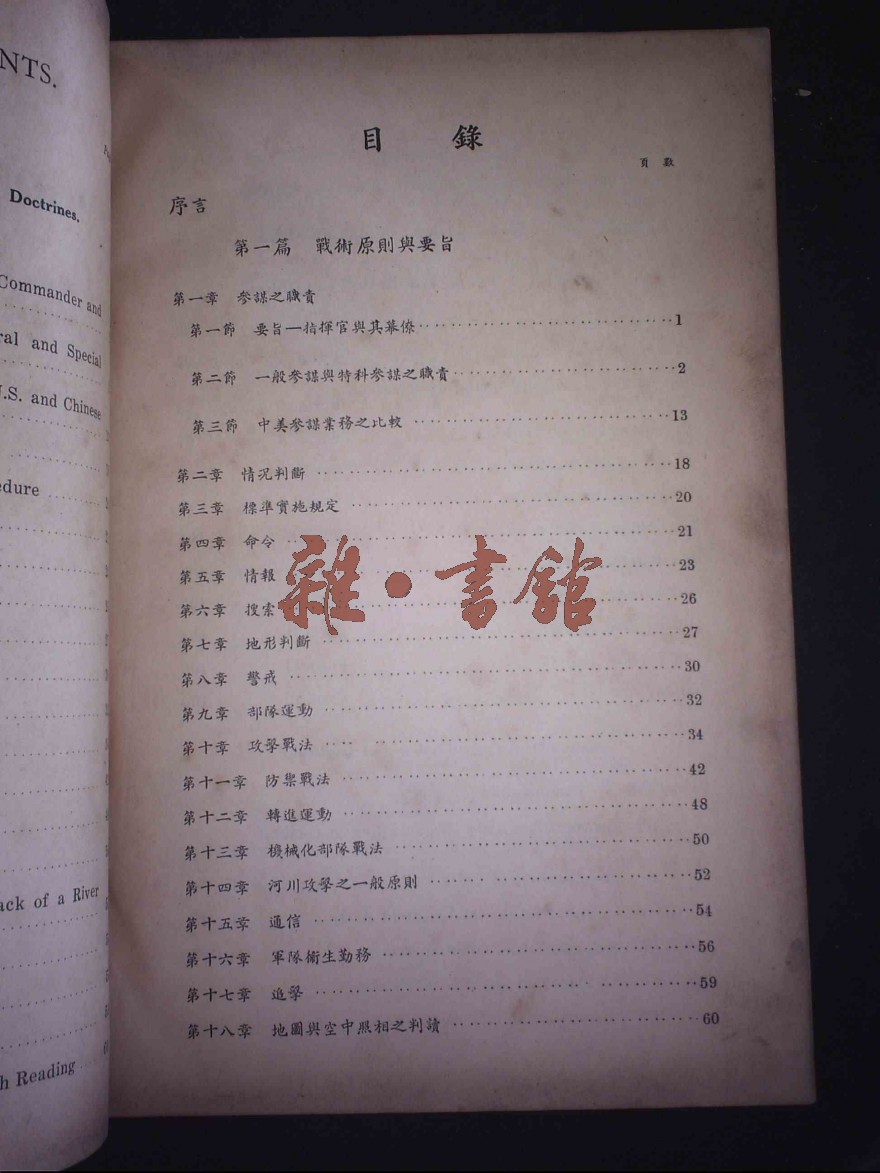 NTS.
Doctrines.
Commander and
ral and Special
U.S. and Chinese
edure
ack of a River
h Reading
目 錄
頁 數
序言
第一篇 戰術原則與要旨
第一章 參謀之職責
第一節 要旨—指揮官與其幕僚 1
第二節 一般參謀與特科參謀之職責 2
第三節 中美參謀業務之比較 13
第二章 情況判斷 18
第三章 標準實施規定 20
第四章 命令 21
第五章 情報 23
第六章 搜索 26
第七章 地形判斷 27
第八章 警戒 30
第九章 部隊運動 32
第十章 攻擊戰法 34
第十一章 防禦戰法 42
第十二章 轉進運動 48
第十三章 機械化部隊戰法 50
第十四章 河川攻擊之一般原則 52
第十五章 通信 54
第十六章 軍隊衛生勤務 56
第十七章 追擊 59
第十八章 地圖與空中照相之判讀 60
雜·書館